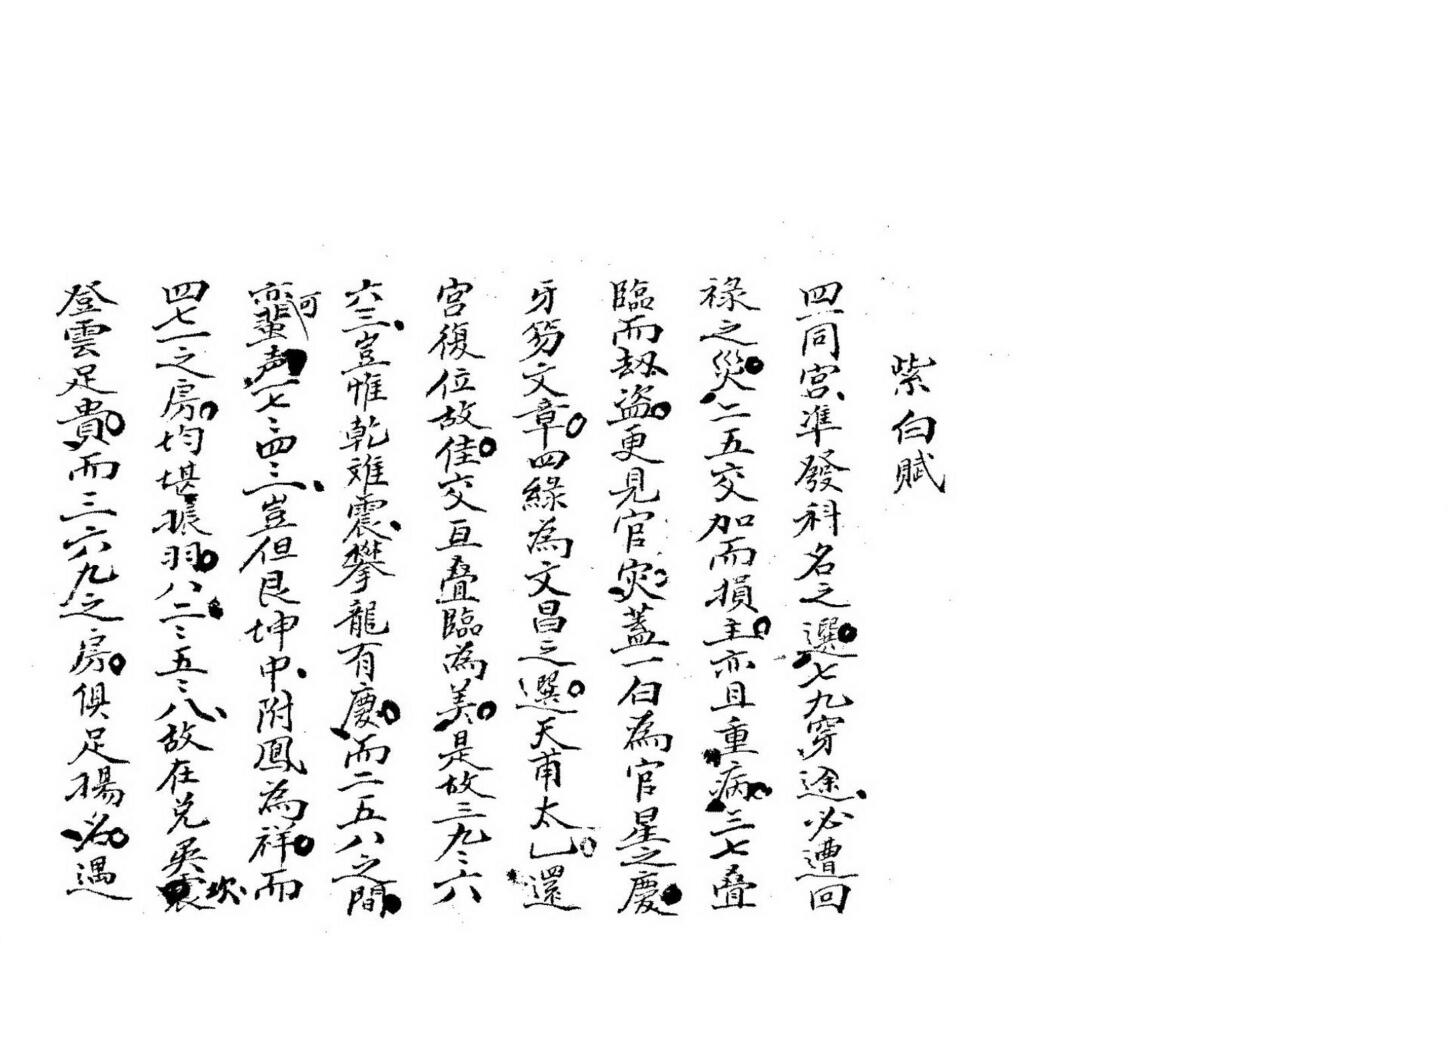 紫白賦
四一同宮準發科名之選七九穿途必遭回
祿之災二五交加而損主亦且重病三七叠
臨而劫盜更見官灾蓋一白為官星之慶
牙笏文章四綠為文昌之選天甫太乙還
宮復位故佳交亘叠臨為美是故三九〻六
六三豈惟乾难震攀龍有慶而二五八之間
亦可蜚声一七〻四三豈但艮坤中附鳳為祥而
四七一之房均堪振羽八二〻五〻八故在兌巽坎
登雲足貴而三六九之房俱足揚名遇